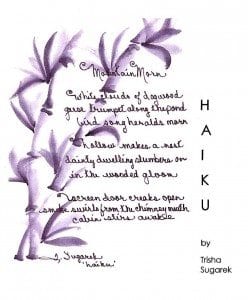 Mountain Morn
White clouds of dogwood
great trumpet along the pond
bird song heralds morn
hollow makes a nest
dainty dwelling slumbers on
in the wooded gloom
screen door creaks open
smoke swirls from the chimney mouth
cabin stirs awake
T. Sugarek
'haiku'
HAIKU
by
Trisha
Sugarek